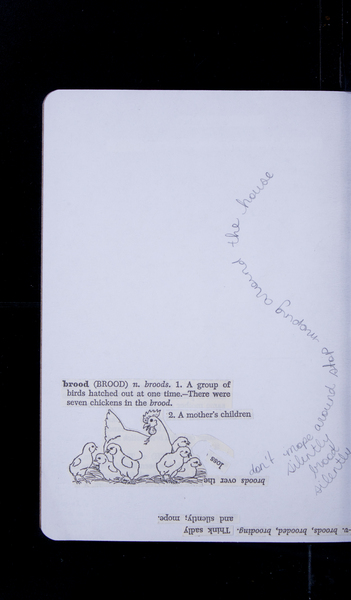 moping around the house
brood (BROOD) n. broods. 1. A group of
birds hatched out at one time.—There were
seven chickens in the brood.
2. A mother's children
loss
broods over the
don't mope around stop
silently
brood
silently
-v. broods, brooded, brooding. Think sadly
and silently; mope.